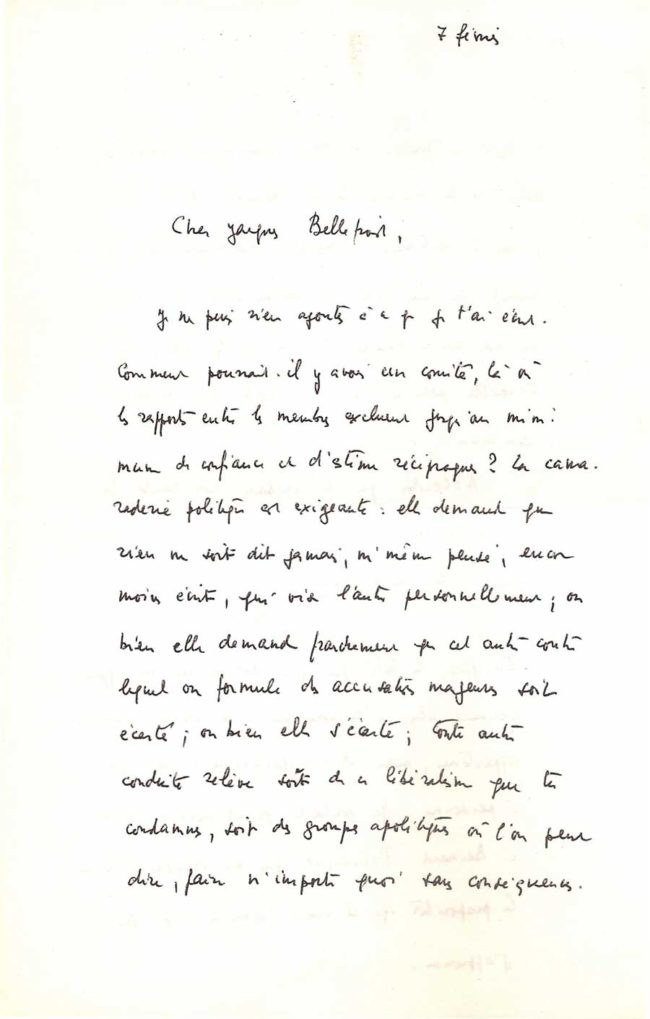 7 février
Cher Jacques Bellefroid,
Je ne puis rien ajouter à ce que je t'ai écrit.
Comment pourrait-il y avoir un comité, là où
les rapports entre les membres excluent jusqu'au mini-
mum de confiance et d'estime réciproques ? La cama-
raderie politique est exigeante : elle demande que
rien ne soit dit jamais, ni même pensé, encore
moins écrit, qui vise l'autre personnellement ; ou
bien elle demande franchement que cet autre contre
lequel on formule des accusations majeures soit
écarté ; ou bien elle s'écarte ; toute autre
conduite relève soit de ce libéralisme que tu
condamnes, soit des groupes apolitiques où l'on peut
dire, faire n'importe quoi sans conséquences.